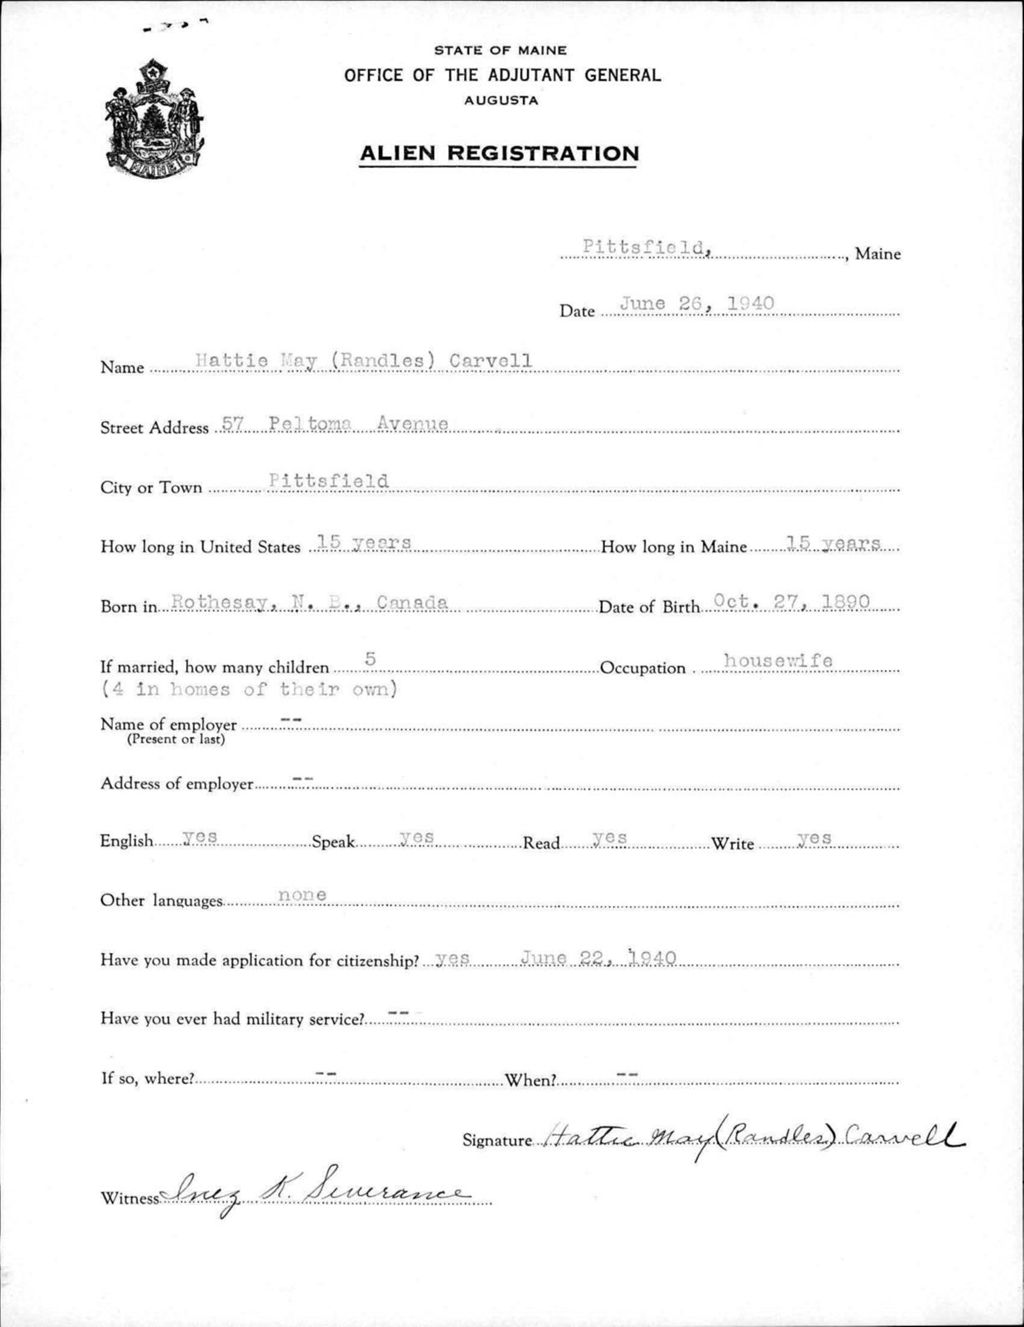 STATE OF MAINE
OFFICE OF THE ADJUTANT GENERAL
AUGUSTA
ALIEN REGISTRATION
MAINE
Pittsfield, , Maine
Date June 26, 1940
Name Hattie May (Randles) Carvell
Street Address 57 Peltoma Avenue
City or Town Pittsfield
How long in United States 15 years How long in Maine 15 years
Born in Rothesay, N. B., Canada Date of Birth Oct. 27, 1890
If married, how many children 5 Occupation housewife
(4 in homes of their own)
Name of employer --
(Present or last)
Address of employer --
English yes Speak yes Read yes Write yes
Other languages none
Have you made application for citizenship? yes June 22, 1940
Have you ever had military service? --
If so, where? -- When? --
Signature Hattie May (Randles) Carvell
Witness Inez K. Severance